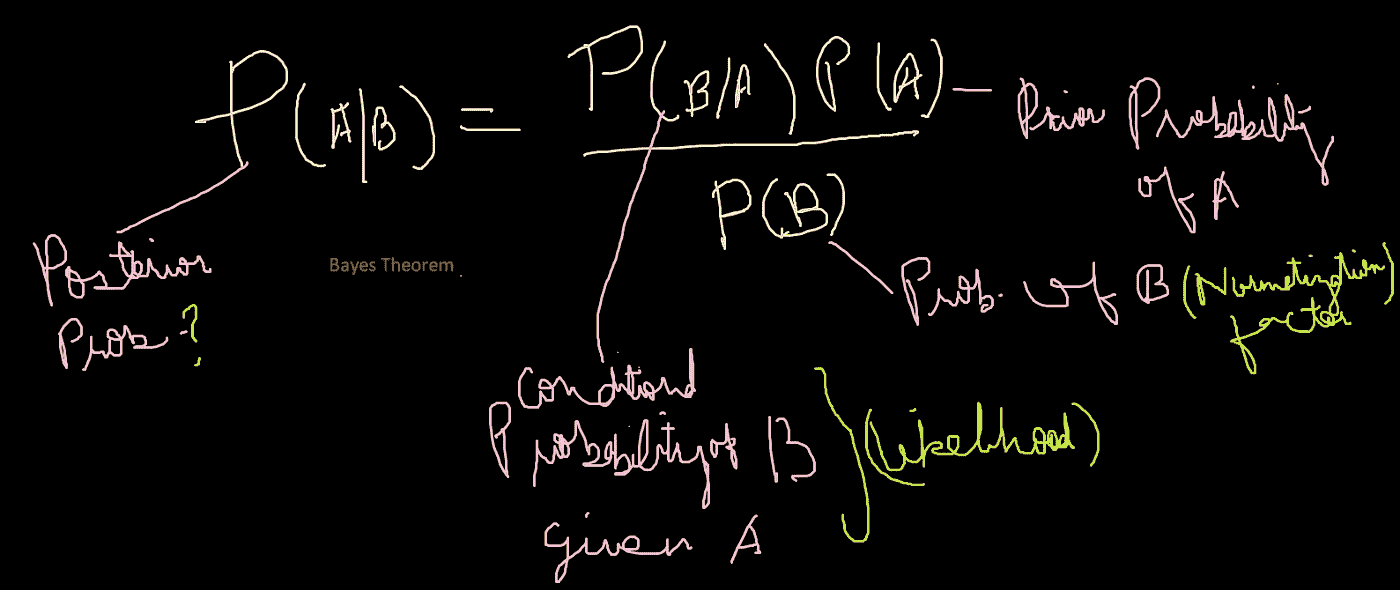 P(A|B) = P(B/A) P(A)
P(B)
Prior Probability
of A
Posterior
Prob ?
Bayes Theorem
Prob. of B (Normatization
factor
Conditional
Probability of B
given A
(Likelihood)